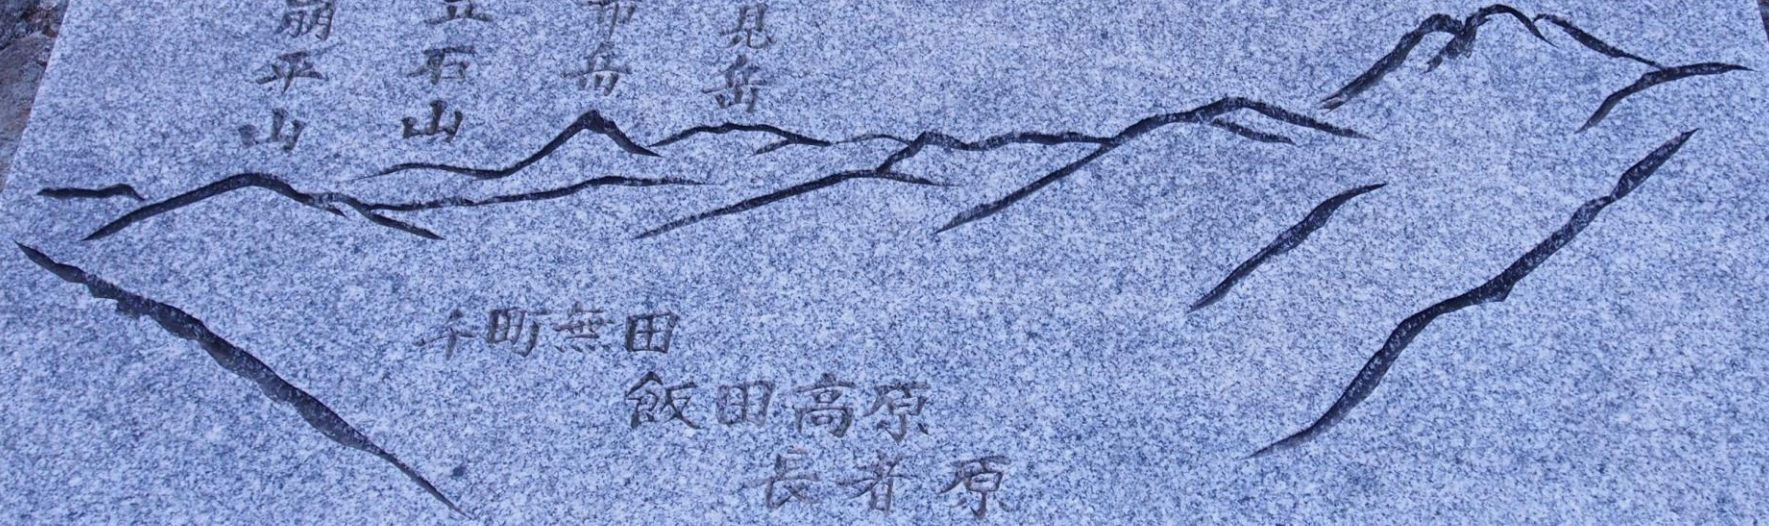 見岳
市岳
立石山
崩平山
千町無田
飯田高原
長者原